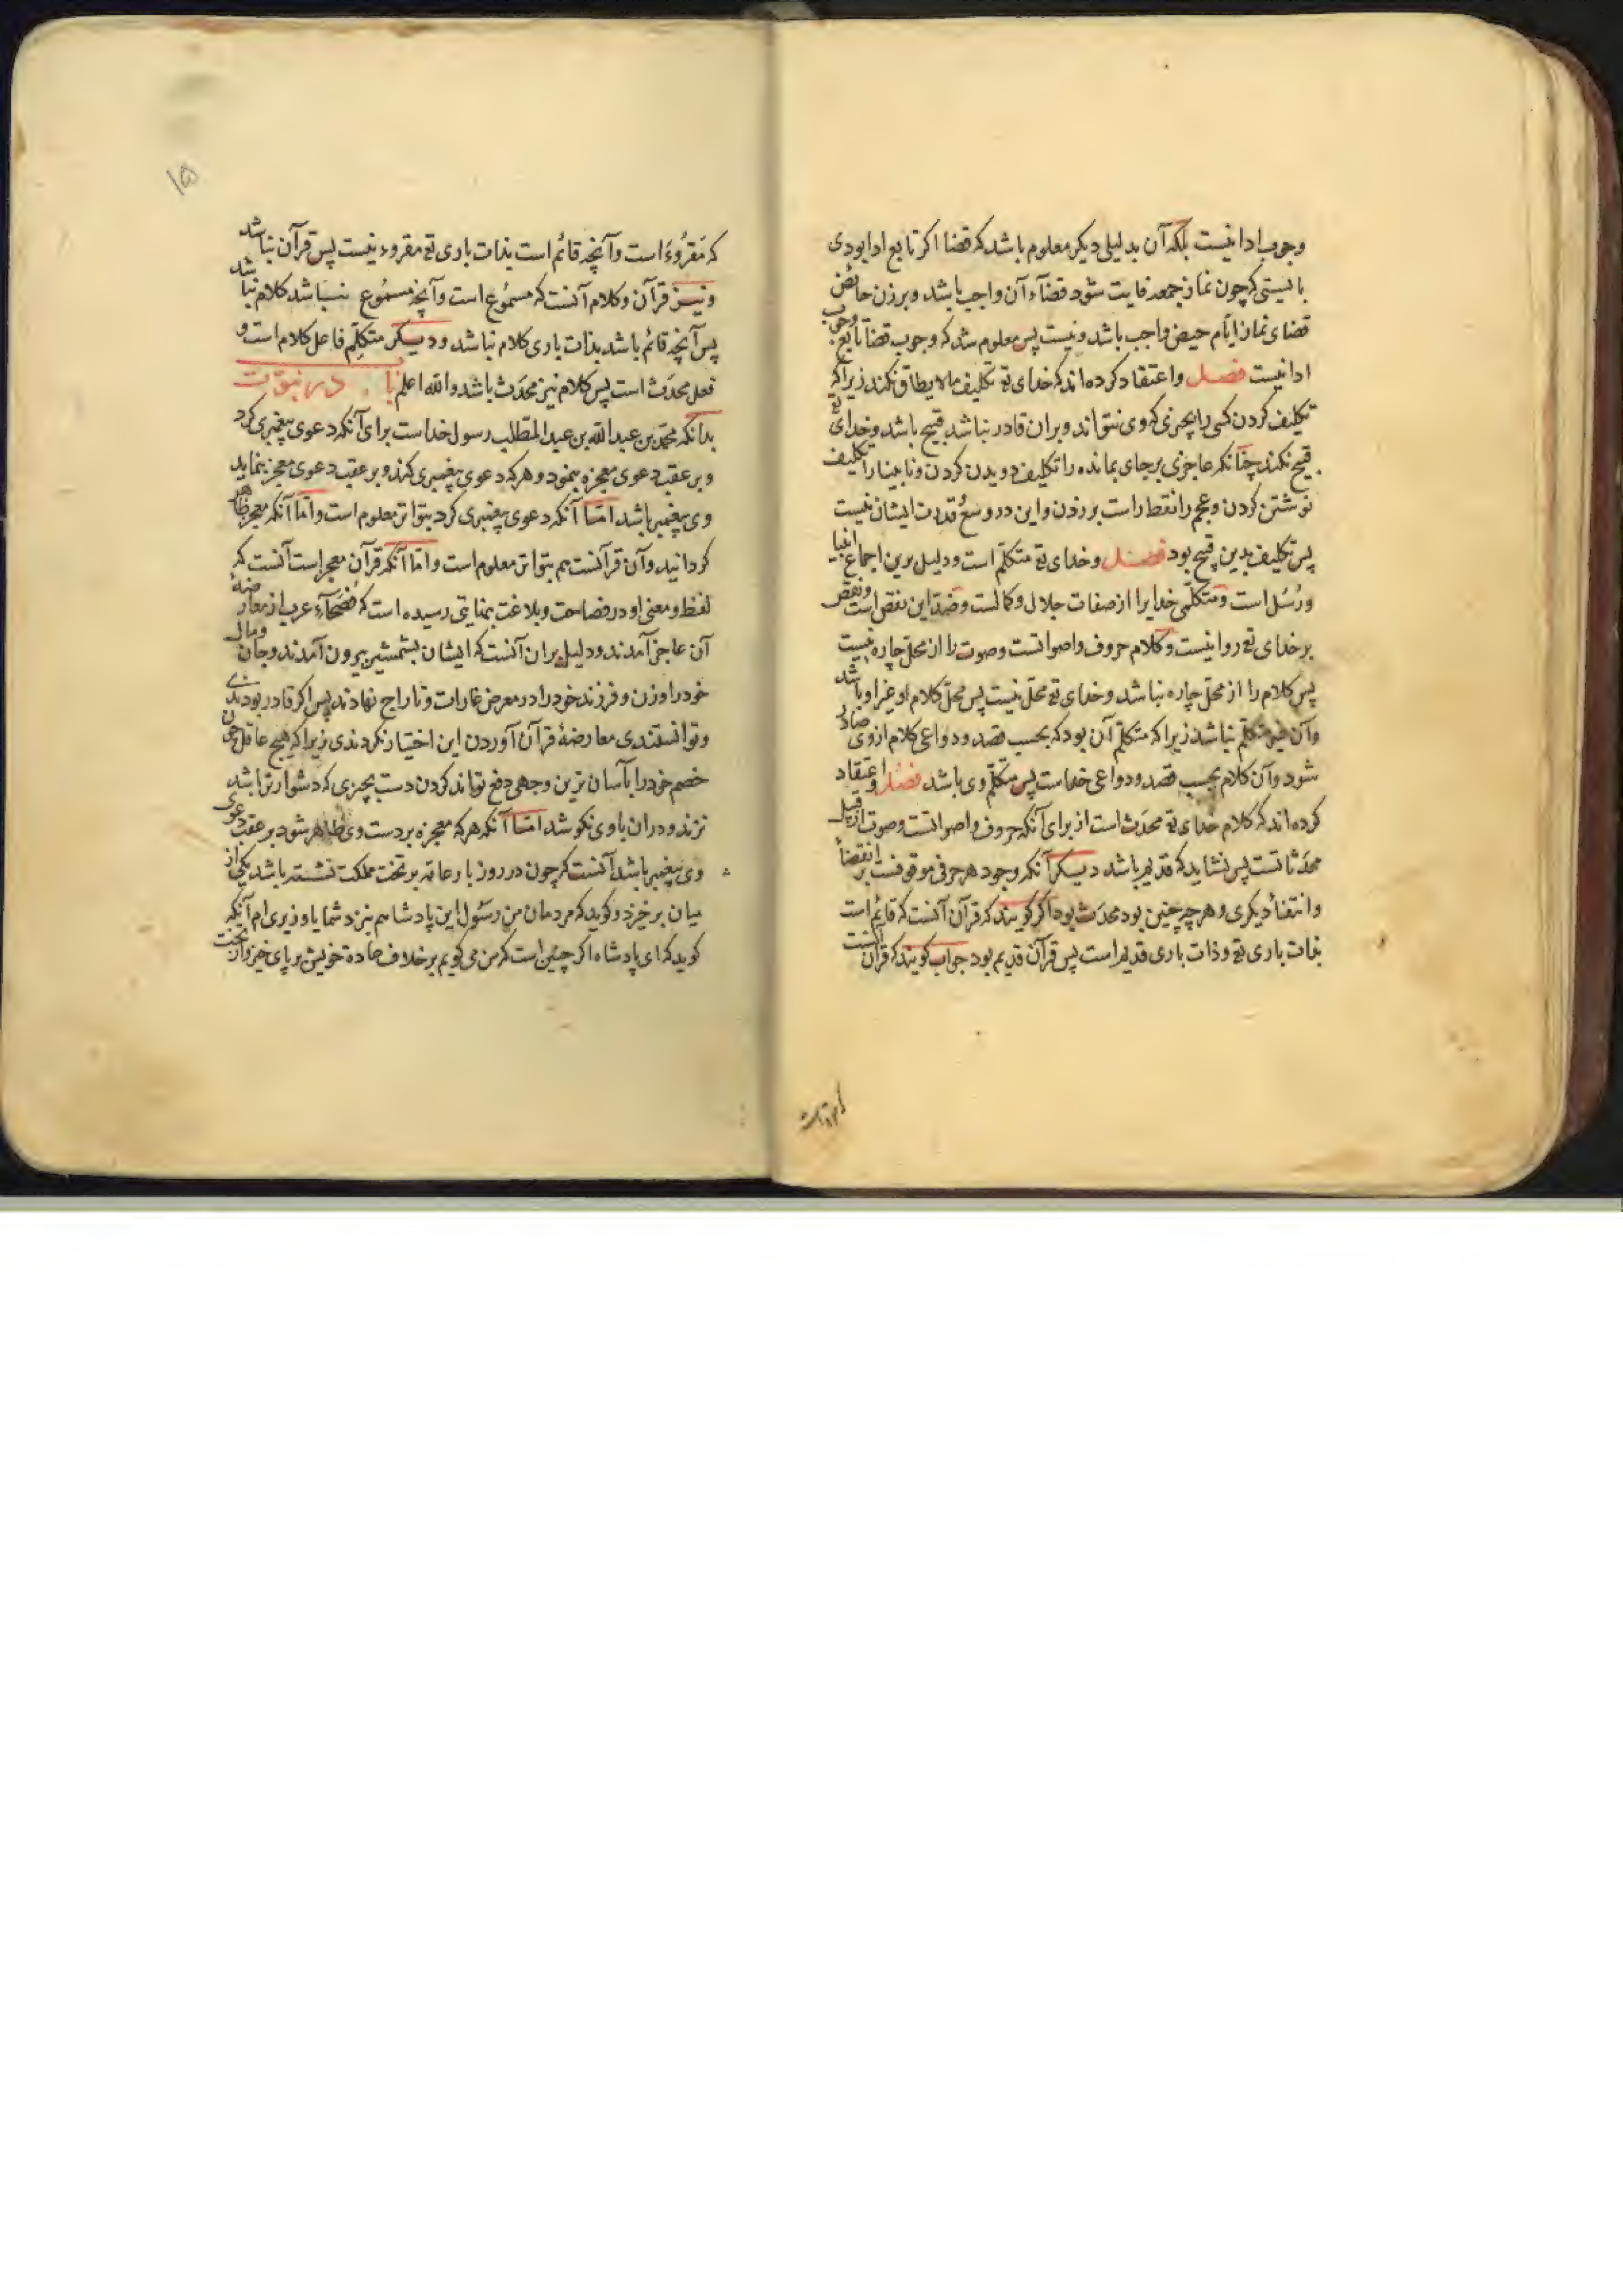 وجوب ادا نیست بلکه آن بدلیلی دیکر معلوم باشد که قضا اکر تابع ادا بودی
بایستی که چون نماز جمعه فایت شود قضآء آن واجب باشد و بر زن حائض
قضای نماز ایّام حیض واجب باشد و نیست پس معلوم شد که وجوب قضا تابع وجوب
ادا نیست فصل واعتقاد کرده اند که خدای تع تکلیف مالا یطاق نکند زیرا که
تکلیف کردن کسی را بچیزی که وی نتواند و بران قادر نباشد قبیح باشد و خدای تع
قبیح نکند چنانکه عاجزی برجای بمانده را تکلیف دویدن کردن و نابینا را تکلیف
نوشتن کردن و عجم را نقط راست بر زدن و این در وسع قدرت ایشان نیست
پس تکلیف بدین قبیح بود فصل وخدای تع متکلّم است و دلیل برین اجماع انبیا
و رُسُل است و متکلّمی خدایرا از صفات جلال و کمالست و ضدّ این نقص است و نقص
بر خدای تع روا نیست و کلام حروف و اصواتست و صوت را از محلّ چاره نیست
پس کلام را از محلّ چاره نباشد و خدای تع محلّ نیست پس محلّ کلام او غیر او باشد
وآن غیر متکلّم نباشد زیرا که متکلّم آن بود که بحسب قصد و دواعی کلام از وی صادر
شود و آن کلام بحسب قصد و دواعی خداست پس متکلّم وی باشد فصل و اعتقاد
کرده اند که کلام خدای تع محدَث است از برای آنکه حروف و اصواتست و صوت از قبیل
محدَثاتست پس نشاید که قدیم باشد دیکر آنکه وجود هر حرفی موقوفست بر انقضأ
و انتفأ دیکری و هر چه چنین بود محدَث بود اکر کویند که قرآن آنست که قائم است
بذات باری تع و ذات باری قدیم است پس قرآن قدیم بود جواب کویند که قرآن آنست
که مَقرُوء است وآنچه قائم است بذات باری تع مقروء نیست پس قرآن نباشد
و نیز قرآن و کلام آنست که مسمُوع است وآنچه مسمُوع نباشد کلام نباشد
پس آنچه قائم باشد بذات باری کلام نباشد و دیکر متکلّم فاعل کلام است و
فعل محدَث است پس کلام نیز محدَث باشد والله اعلم با در نبوّت
بدانکه محمّد بن عبد الله بن عبد المطّلب رسول خداست برای آنکه دعوی پیغمبری کرد
و بر عقب دعوی معجزه بنمود و هر که دعوی پیغمبری کند و بر عقب دعوی معجز بنماید
وی پیغمبر باشد امّا آنکه دعوی پیغمبری کرد بتواتر معلوم است و امّا آنکه معجز ظاهر
کردانید وآن قرآنست هم بتواتر معلوم است و امّا آنکه قرآن معجز است آنست که
لفظ و معنی او در فصاحت و بلاغت بغایتی رسیده است که فُصَحآء عرب از معارضهٔ
آن عاجز آمدند و دلیل بران آنست که ایشان بشمشیر بیرون آمدند و جان و مال
خود را و زن و فرزند خود را در معرض غارات و تاراج نهادند پس اکر قادر بودندی
و توانستندی معارضهٔ قرآن آوردن این اختیار نکردندی زیرا که هیچ عاقل چون
خصم خود را بآسان ترین وجهی دفع تواند کردن دست بچیزی که دشوارتر باشد
نزند و دران باوی نکوشد امّا آنکه هر که معجزه بر دست وی ظاهر شود بر عقب دعوی
وی پیغمبر باشد آنست که چون در روز بار عام بر تخت مملکت نشسته باشد یکی از
میان برخیزد و کوید که مردمان من رسُول این پادشاهم بنزد شما یا وزیری ام آنکه
کوید که ای پادشاه اکر چنین است که من می کویم بر خلاف عادة خویش بر پای خیز و از تخت
۱۵